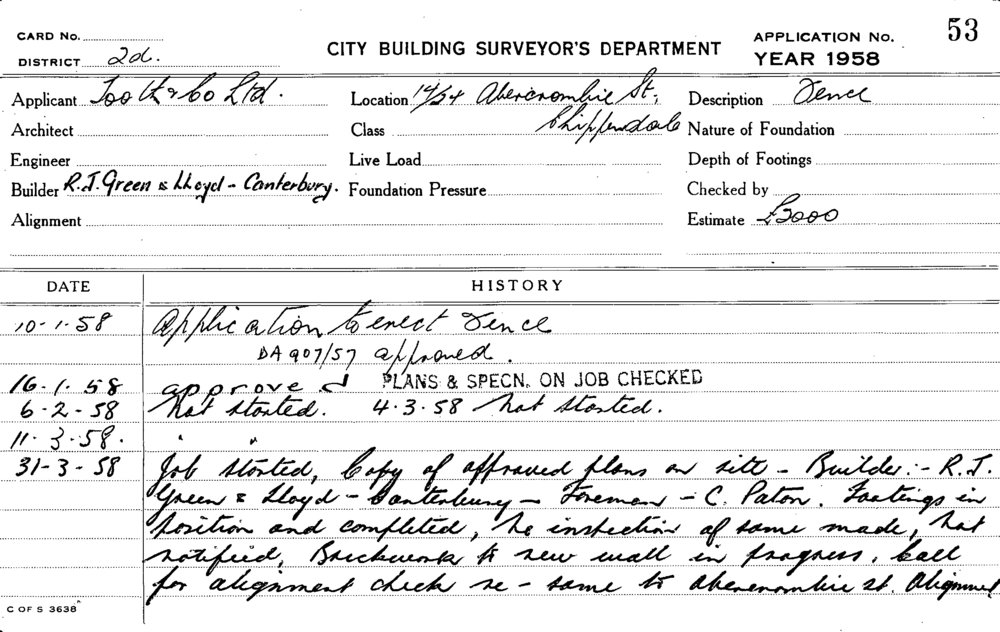 53
CARD No.
DISTRICT 2d.
CITY BUILDING SURVEYOR'S DEPARTMENT
APPLICATION No.
YEAR 1958
Applicant Tooth & Co Ltd. Location 14/34 Abercrombie St, Description Fence
Architect Class Chippendale Nature of Foundation
Engineer Live Load Depth of Footings
Builder R.J. Green & Lloyd - Canterbury. Foundation Pressure Checked by
Alignment Estimate £3000
DATE HISTORY
10-1-58 Application to erect Fence
DA 907/57 approved.
16-1-58 approved PLANS & SPECN. ON JOB CHECKED
6-2-58 Not started. 4.3.58 Not started.
11-3-58. " "
31-3-58 Job started, Copy of approved plans on site - Builder:- R.J.
Green & Lloyd - Canterbury - Foreman - C. Paton. Footings in
position and completed, No inspection of same made, Not
notified, Brickwork to new wall in progress. Call
for alignment check re - same to Abercrombie st. Alignment
C OF S 3638